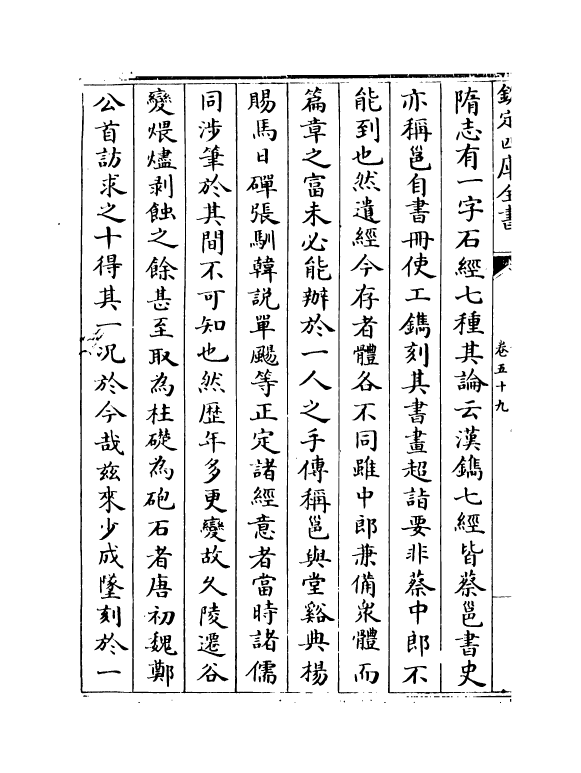 欽定四庫全書
卷五十九
隋志有一字石經七種其論云漢鐫七經皆蔡邕書史
亦稱邕自書冊使工鐫刻其書畫超詣要非蔡中郎不
能到也然遺經今存者體各不同雖中郎兼備衆體而
篇章之富未必能辦於一人之手傳稱邕與堂谿典楊
賜馬日磾張馴韓說單颺等正定諸經意者當時諸儒
同涉筆於其間不可知也然歴年多更變故久陵遷谷
變煨燼剥蝕之餘甚至取為柱礎為砲石者唐初魏鄭
公首訪求之十得其一況於今哉兹來少成墜刻於一